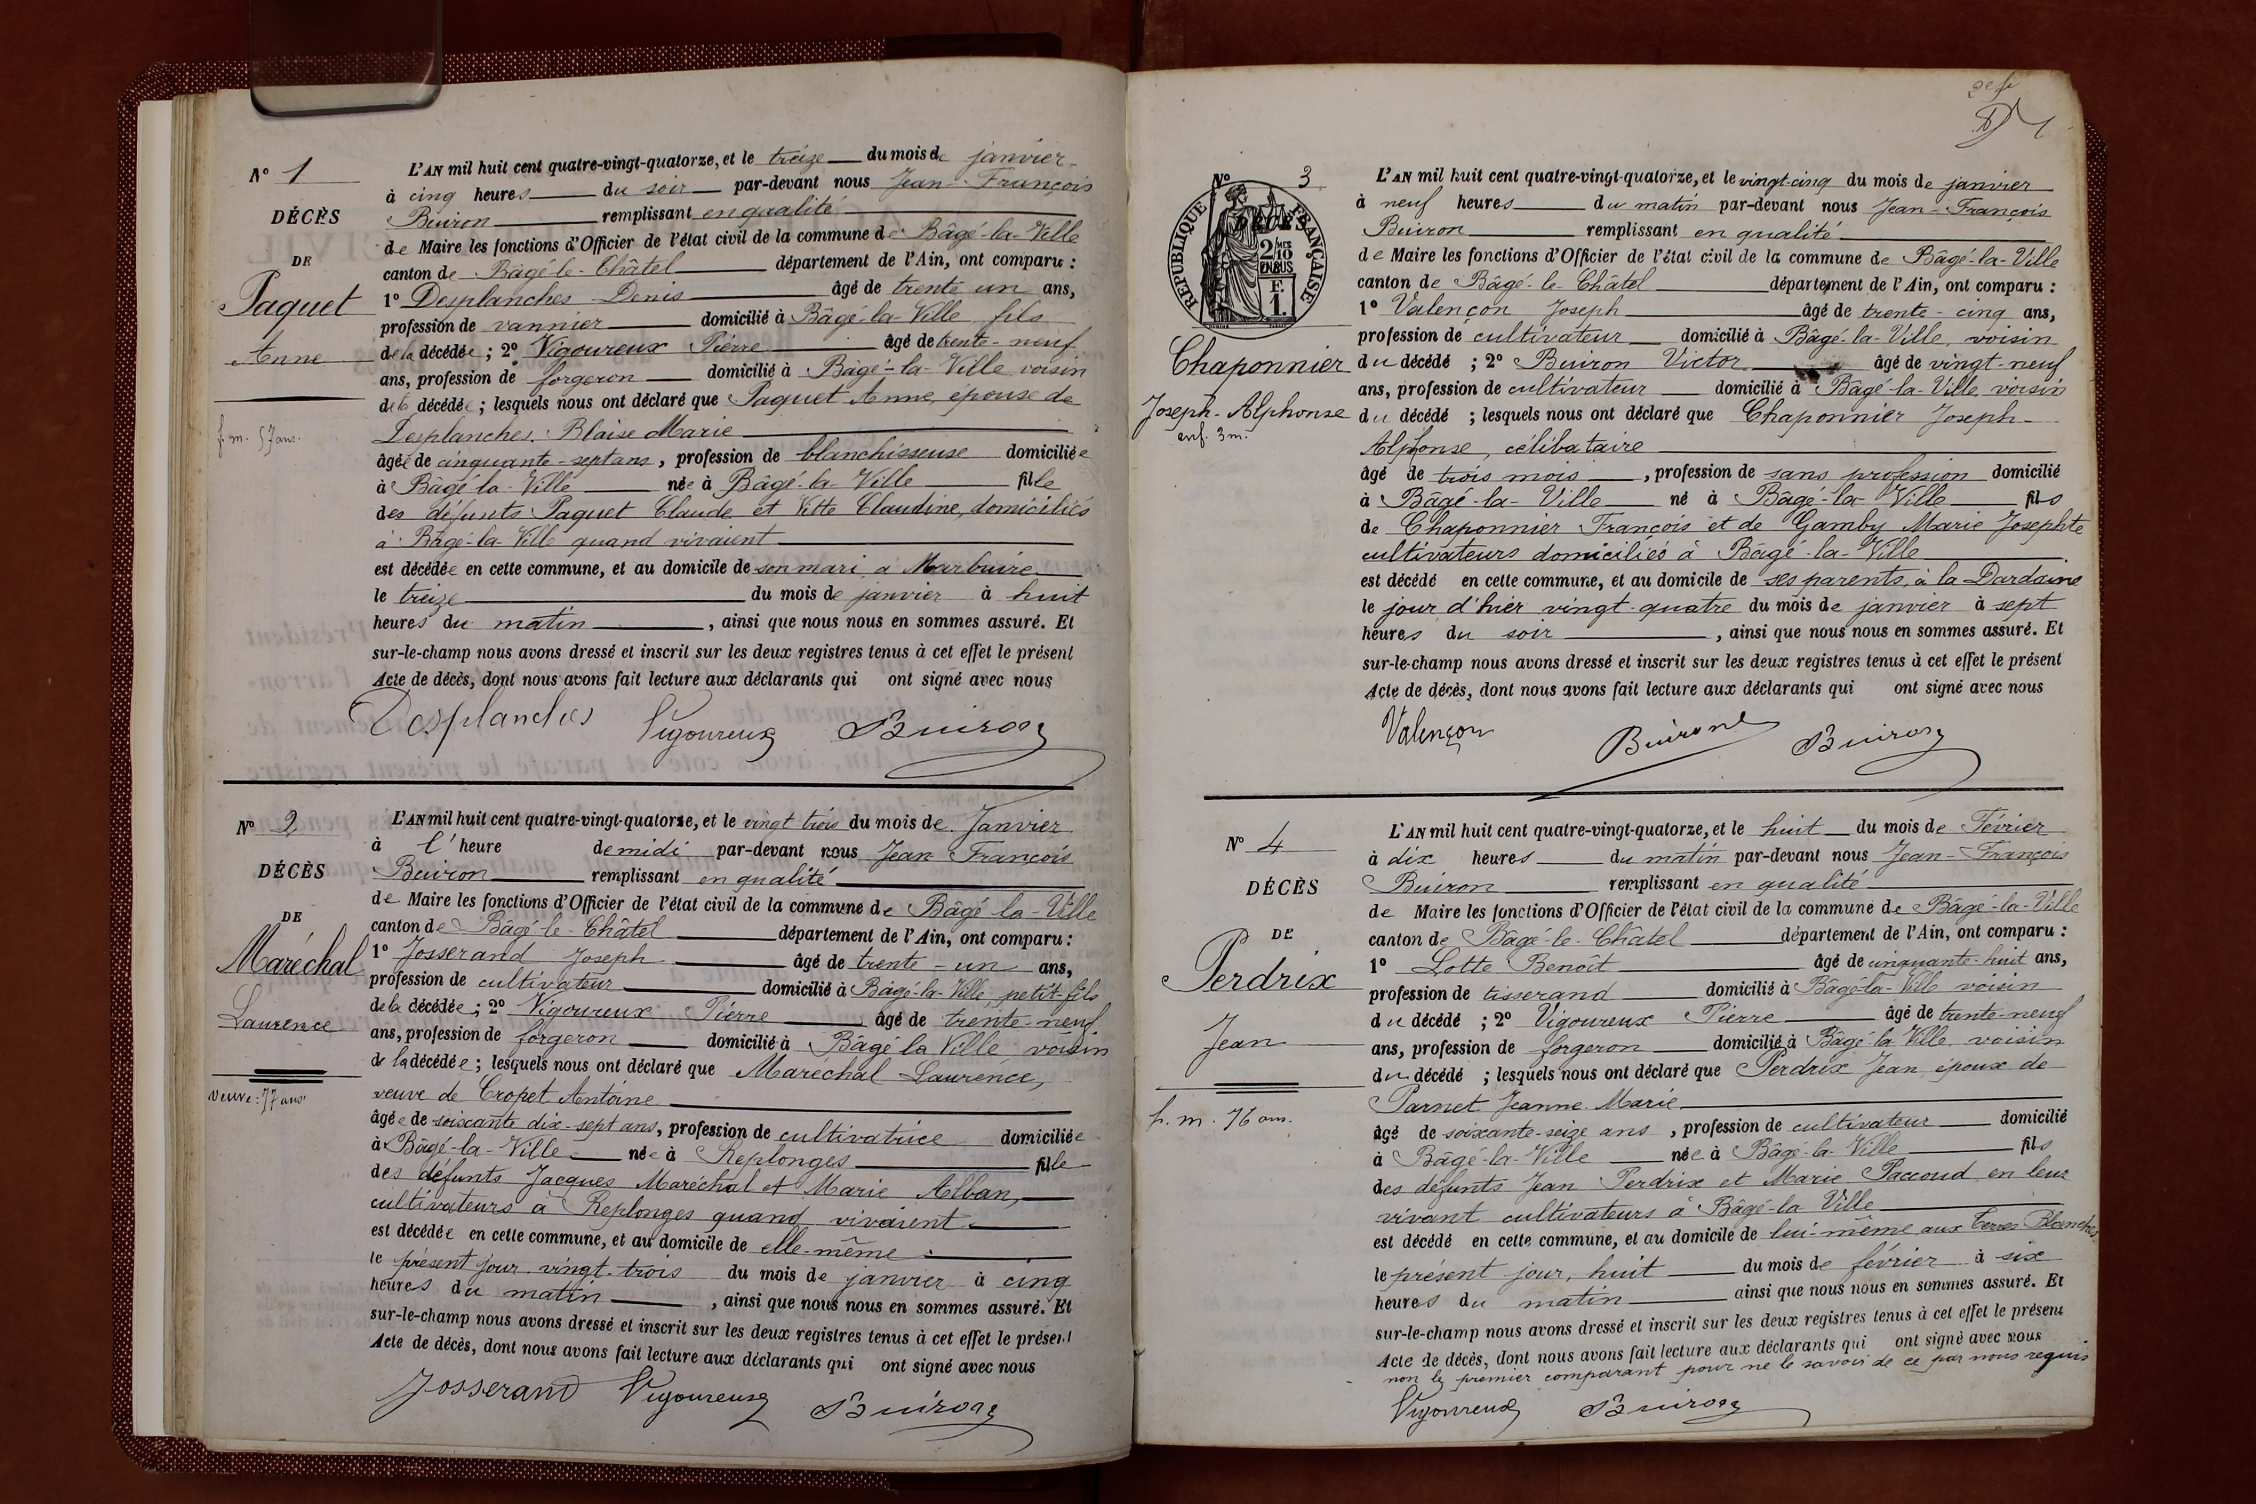 Nº 1
DÉCÈS
DE
Paquet
Anne
f. m. 57 ans.
L'AN mil huit cent quatre-vingt-quatorze, et le treize du mois de janvier
à cinq heures du soir par-devant nous Jean-François
Buiron remplissant en qualité
de Maire les fonctions d'Officier de l'état civil de la commune de Bâgé-la-Ville
canton de Bâgé-le-Châtel département de l'Ain, ont comparu :
1º Desplanches Denis âgé de trente un ans,
profession de vannier domicilié à Bâgé-la-Ville fils
de la décédée ; 2º Vigoureux Pierre âgé de trente-neuf
ans, profession de forgeron domicilié à Bâgé-la-Ville voisin
de la décédée ; lesquels nous ont déclaré que Paquet Anne, épouse de
Desplanches Blaise Marie
âgée de cinquante-sept ans, profession de blanchisseuse domiciliée
à Bâgé-la-Ville née à Bâgé-la-Ville fille
des défunts Paquet Claude et Vitte Claudine, domiciliés
à Bâgé-la-Ville quand vivaient
est décédée en cette commune, et au domicile de son mari à Marbuire
le treize du mois de janvier à huit
heures du matin, ainsi que nous nous en sommes assuré. Et
sur-le-champ nous avons dressé et inscrit sur les deux registres tenus à cet effet le présent
Acte de décès, dont nous avons fait lecture aux déclarants qui ont signé avec nous
Desplanches Vigoureux Buiron
Nº 2
DÉCÈS
DE
Maréchal
Laurence
veuve : 77 ans
L'AN mil huit cent quatre-vingt-quatorze, et le vingt trois du mois de Janvier
à l'heure de midi par-devant nous Jean François
Buiron remplissant en qualité
de Maire les fonctions d'Officier de l'état civil de la commune de Bâgé-la-Ville
canton de Bâgé-le-Châtel département de l'Ain, ont comparu :
1º Josserand Joseph âgé de trente-un ans,
profession de cultivateur domicilié à Bâgé-la-Ville, petit-fils
de la décédée ; 2º Vigoureux Pierre âgé de trente-neuf
ans, profession de forgeron domicilié à Bâgé la Ville voisin
de la décédée ; lesquels nous ont déclaré que Maréchal Laurence,
veuve de Cropet Antoine
âgée de soixante dix-sept ans, profession de cultivatrice domiciliée
à Bâgé-la-Ville née à Replonges fille
des défunts Jacques Maréchal et Marie Alban,
cultivateurs à Replonges quand vivaient
est décédée en cette commune, et au domicile de elle-même
le présent jour vingt-trois du mois de janvier à cinq
heures du matin, ainsi que nous nous en sommes assuré. Et
sur-le-champ nous avons dressé et inscrit sur les deux registres tenus à cet effet le présent
Acte de décès, dont nous avons fait lecture aux déclarants qui ont signé avec nous
Josserand Vigoureux Buiron
Nº 3
RÉPUBLIQUE FRANÇAISE
2/10 EN SUS
F. 1.
Chaponnier
Joseph-Alphonse
enf. 3 m.
L'AN mil huit cent quatre-vingt-quatorze, et le vingt-cinq du mois de janvier
à neuf heures du matin par-devant nous Jean-François
Buiron remplissant en qualité
de Maire les fonctions d'Officier de l'état civil de la commune de Bâgé-la-Ville
canton de Bâgé-le-Châtel département de l'Ain, ont comparu :
1º Valençon Joseph âgé de trente-cinq ans,
profession de cultivateur domicilié à Bâgé-la-Ville, voisin
du décédé ; 2º Buiron Victor âgé de vingt-neuf
ans, profession de cultivateur domicilié à Bâgé-la-Ville voisin
du décédé ; lesquels nous ont déclaré que Chaponnier Joseph-
Alphonse, célibataire
âgé de trois mois, profession de sans profession domicilié
à Bâgé-la-Ville né à Bâgé-la-Ville fils
de Chaponnier François et de Gamby Marie Josephte
cultivateurs domiciliés à Bâgé-la-Ville
est décédé en cette commune, et au domicile de ses parents, à la Dardaine
le jour d'hier vingt-quatre du mois de janvier à sept
heures du soir, ainsi que nous nous en sommes assuré. Et
sur-le-champ nous avons dressé et inscrit sur les deux registres tenus à cet effet le présent
Acte de décès, dont nous avons fait lecture aux déclarants qui ont signé avec nous
Valençon Buiron Buiron
Nº 4
DÉCÈS
DE
Perdrix
Jean
h. m. 76 ans.
L'AN mil huit cent quatre-vingt-quatorze, et le huit du mois de Février
à dix heures du matin par-devant nous Jean-François
Buiron remplissant en qualité
de Maire les fonctions d'Officier de l'état civil de la commune de Bâgé-la-Ville
canton de Bâgé-le-Châtel département de l'Ain, ont comparu :
1º Lotte Benoît âgé de cinquante-huit ans,
profession de tisserand domicilié à Bâgé-la-Ville voisin
du décédé ; 2º Vigoureux Pierre âgé de trente-neuf
ans, profession de forgeron domicilié à Bâgé-la-Ville voisin
du décédé ; lesquels nous ont déclaré que Perdrix Jean époux de
Parnet Jeanne-Marie
âgé de soixante-seize ans, profession de cultivateur domicilié
à Bâgé-la-Ville née à Bâgé-la-Ville fils
des défunts Jean Perdrix et Marie Paccoud en leur
vivant cultivateurs à Bâgé-la Ville
est décédé en cette commune, et au domicile de lui-même aux Terres Blanches
le présent jour, huit du mois de février à six
heures du matin ainsi que nous nous en sommes assuré. Et
sur-le-champ nous avons dressé et inscrit sur les deux registres tenus à cet effet le présent
Acte de décès, dont nous avons fait lecture aux déclarants qui ont signé avec nous
non le premier comparant pour ne le savoir de ce par nous requis
Vigoureux Buiron